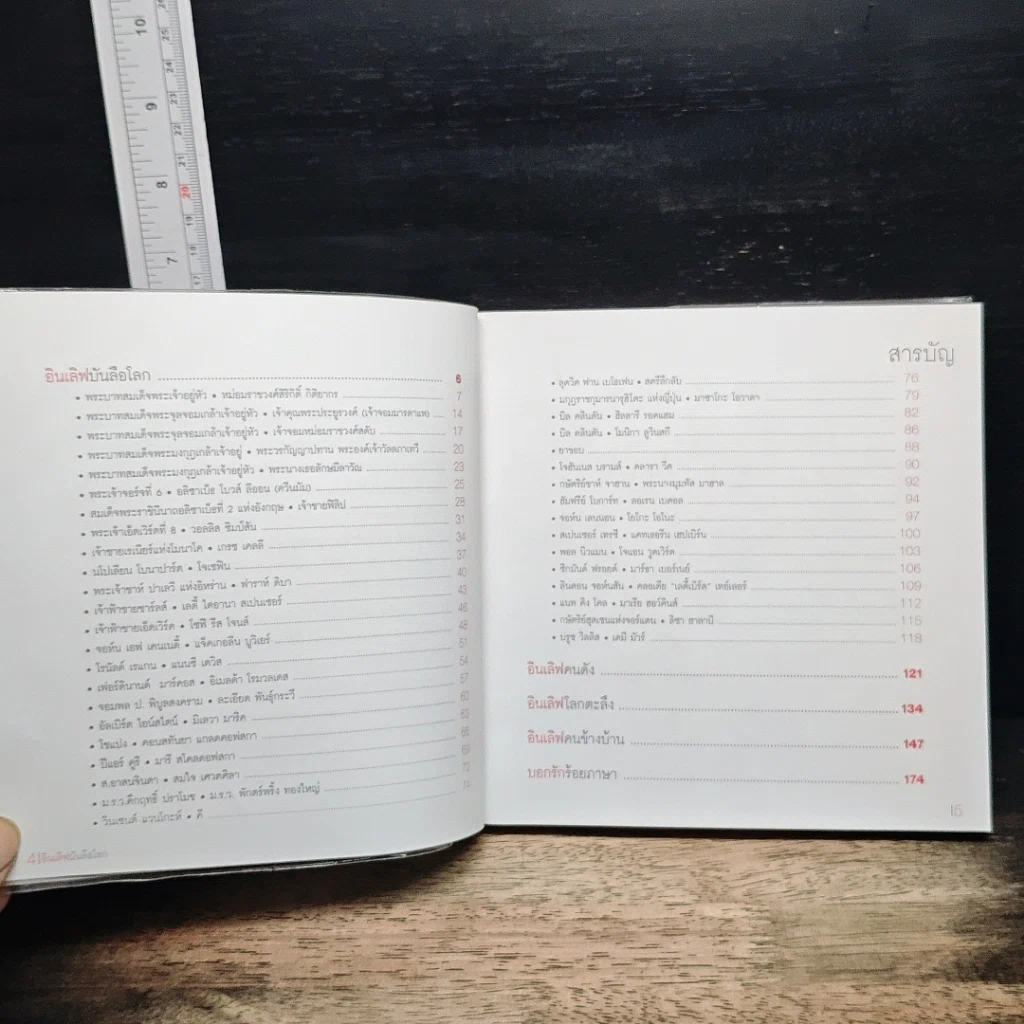 10
9
8
7
26
25
24
23
22
21
20
19
18
17
อินเลิฟบันลือโลก 6
• พระบาทสมเด็จพระเจ้าอยู่หัว • หม่อมราชวงศ์สิริกิติ์ กิติยากร 7
• พระบาทสมเด็จพระจุลจอมเกล้าเจ้าอยู่หัว • เจ้าคุณพระประยูรวงศ์ (เจ้าจอมมารดาแพ) 14
• พระบาทสมเด็จพระจุลจอมเกล้าเจ้าอยู่หัว • เจ้าจอมหม่อมราชวงศ์สดับ 17
• พระบาทสมเด็จพระมงกุฎเกล้าเจ้าอยู่ • พระวรกัญญาปทาน พระองค์เจ้าวัลลภาเทวี 20
• พระบาทสมเด็จพระมงกุฎเกล้าเจ้าอยู่หัว • พระนางเธอลักษมีลาวัณ 23
• พระเจ้าจอร์จที่ 6 • อลิซาเบ็ธ โบวส์ ลีออน (ควีนมัม) 25
• สมเด็จพระราชินีนาถอลิซาเบ็ธที่ 2 แห่งอังกฤษ • เจ้าชายฟิลิป 28
• พระเจ้าเอ็ดเวิร์ดที่ 8 • วอลลิส ซิมป์สัน 31
• เจ้าชายเรเนียร์แห่งโมนาโค • เกรซ เคลลี 34
• นโปเลียน โบนาปาร์ต • โจเซฟิน 37
• พระเจ้าชาห์ ปาเลวี แห่งอิหร่าน • ฟาราห์ ดิบา 40
• เจ้าฟ้าชายชาร์ลส์ • เลดี้ ไดอานา สเปนเซอร์ 43
• เจ้าฟ้าชายเอ็ดเวิร์ด • โซฟี รีส โจนส์ 46
• จอห์น เอฟ เคนเนดี้ • แจ็คเกอลีน บูวิเยร์ 48
• โรนัลด์ เรแกน • แนนซี เดวิส 51
• เฟอร์ดินานด์ มาร์คอส • อิเมลด้า โรมวลเดส 54
• จอมพล ป. พิบูลสงคราม • ละเอียด พันธุ์กระวี 57
• อัลเบิร์ต ไอน์สไตน์ • มิเลวา มาริค 60
• โชแปง • คอนสทันยา แกลดคอฟสกา 63
• ปิแอร์ คูรี • มารี สโคลดอฟสกา 66
• ส.อาสนจินดา • สมใจ เศวตศิลา 69
• ม.ร.ว.คึกฤทธิ์ ปราโมช • ม.ร.ว. พักตร์พริ้ง ทองใหญ่ 72
• วินเซนต์ แวนโกะห์ • คี 74
4 | อินเลิฟบันลือโลก
สารบัญ
• ลุดวิค ฟาน เบโธเฟน • สตรีลึกลับ 76
• มกุฎราชกุมารนารุฮิโตะ แห่งญี่ปุ่น • มาซาโกะ โอวาดา 79
• บิล คลินตัน • ฮิลลารี รอดแฮม 82
• บิล คลินตัน • โมนิกา ลูวินสกี 86
• ยาขอบ 88
• โจฮันเนส บรามส์ • คลารา วีค 90
• กษัตริย์ชาห์ จาฮาน • พระนางมุมทัส มาฮาล 92
• ฮัมฟรีย์ โบการ์ท • ลอเรน เบคอล 94
• จอห์น เลนนอน • โยโกะ โอโนะ 97
• สเปนเซอร์ เทรซี • แคทเธอรีน เฮปเบิร์น 100
• พอล นิวแมน • โจแอน วูดเวิร์ด 103
• ซิกมันด์ ฟรอยด์ • มาร์ธา เบอร์เนย์ 106
• ลินดอน จอห์นสัน • คลอเดีย "เลดี้เบิร์ด" เทย์เลอร์ 109
• แนท คิง โคล • มาเรีย ฮอว์คินส์ 112
• กษัตริย์ฮุสเซนแห่งจอร์แดน • ลิซา ฮาลาบี 115
• บรูซ วิลลิส • เดมี มัวร์ 118
อินเลิฟคนดัง 121
อินเลิฟโลกตะลึง 134
อินเลิฟคนข้างบ้าน 147
บอกรักร้อยภาษา 174
| 5